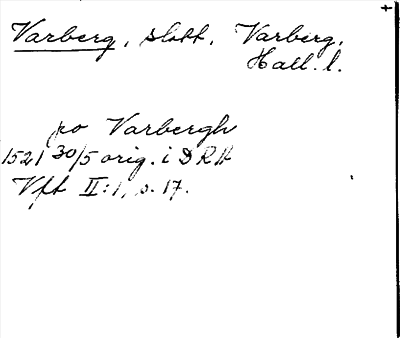 Varberg, slott, Varberg,
Hall. l.
po Varbergh
1521 30/5 orig. i DRA
Vft II:1, s. 17.